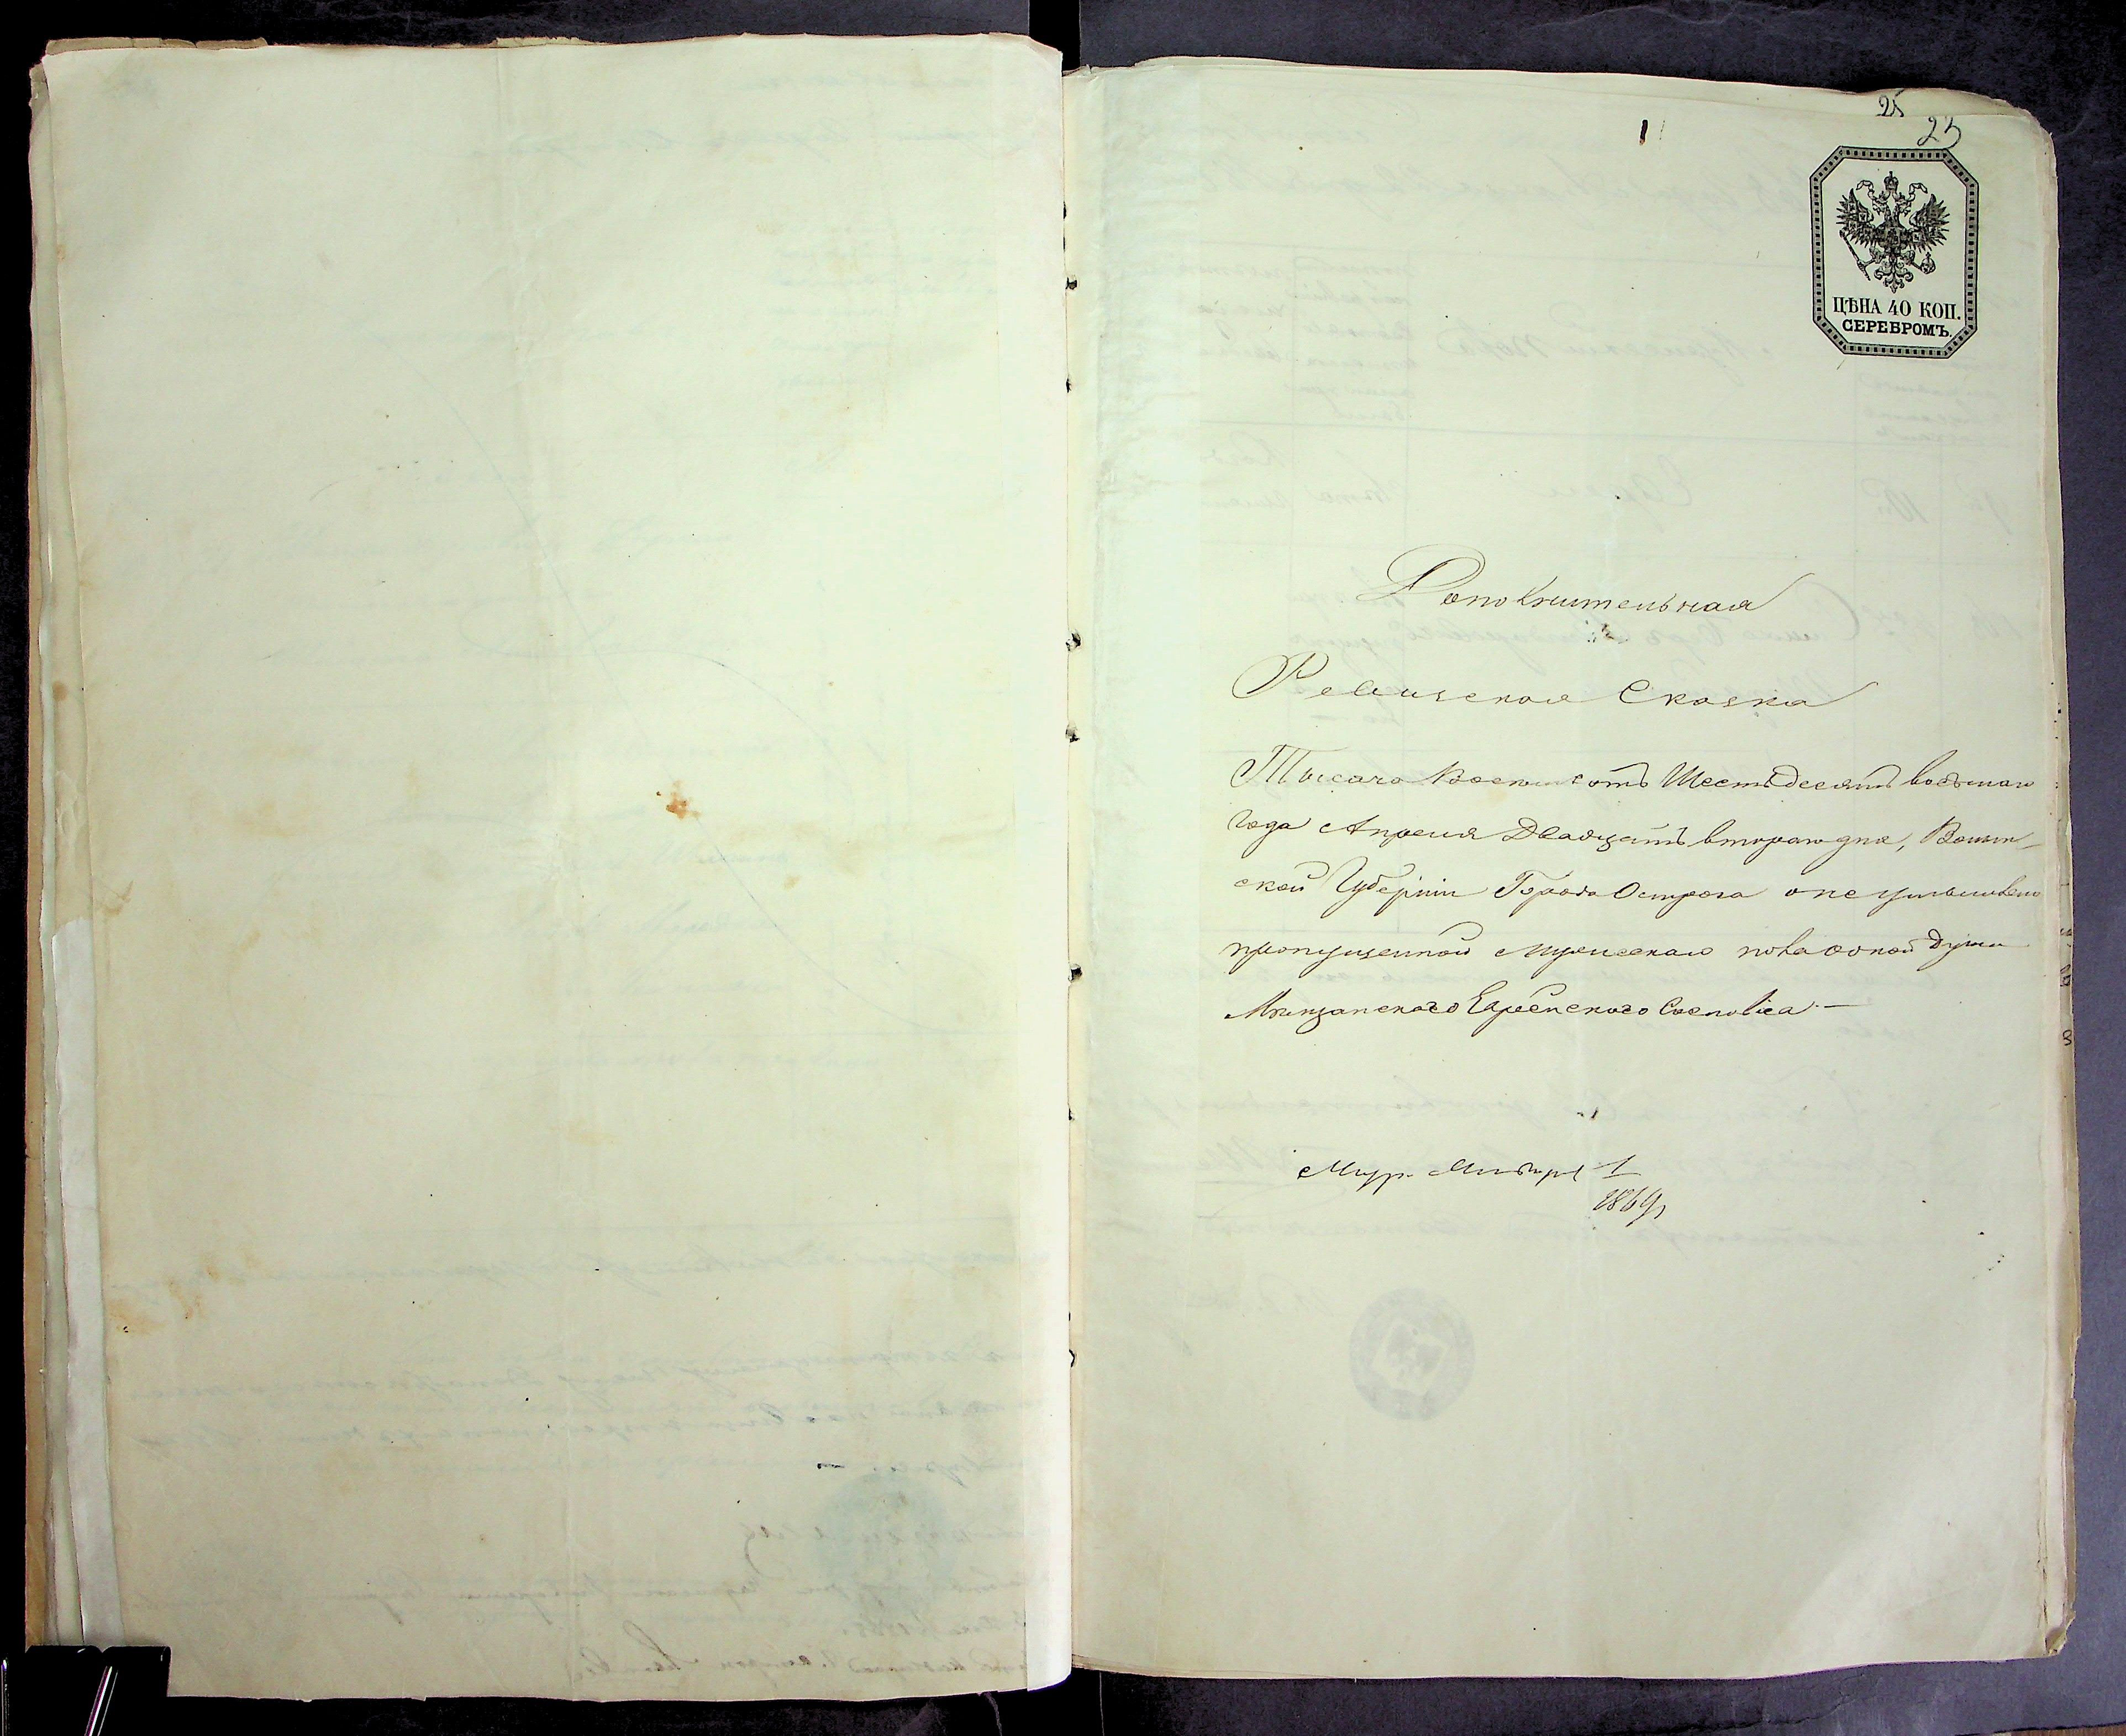 25
25
ЦѢНА 40 КОП.
СЕРЕБРОМЪ.
Дополнительная
Ревизская Сказка
Тысяча Восемьсотъ Шестьдесятъ восьмаго
года Апреля Двадцать втораго дня, Волын-
ской Губерніи Города Острога о неумышленно
пропущенной мужескаго пола одной души
Мѣщанского Еврейского Сословіа. —
1
1869